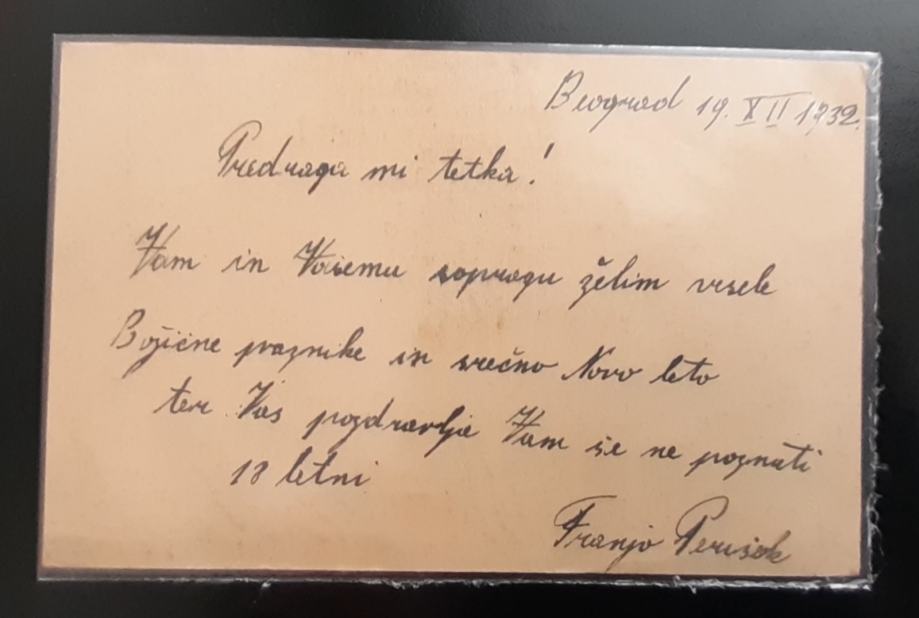 Beograd 19. XII 1932.
Predraga mi tetka!
Vam in Vašemu soprogu želim vesele
Božićne praznike in srečno Novo leto
ter Vas pozdravlja Vam še ne poznati
18 letni
Franjo Perušek